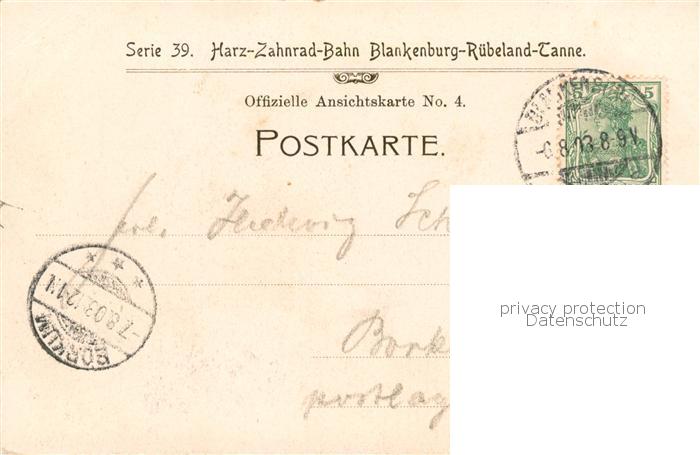 Serie 39. Harz-Zahnrad-Bahn Blankenburg-Rübeland-Tanne.
Offizielle Ansichtskarte No. 4.
POSTKARTE.
5 5
-6.8.03.8-9V
Frl. Hedwig Sch
Bork
postlag
7.8.03.12-1N
BORKUM
privacy protection
Datenschutz